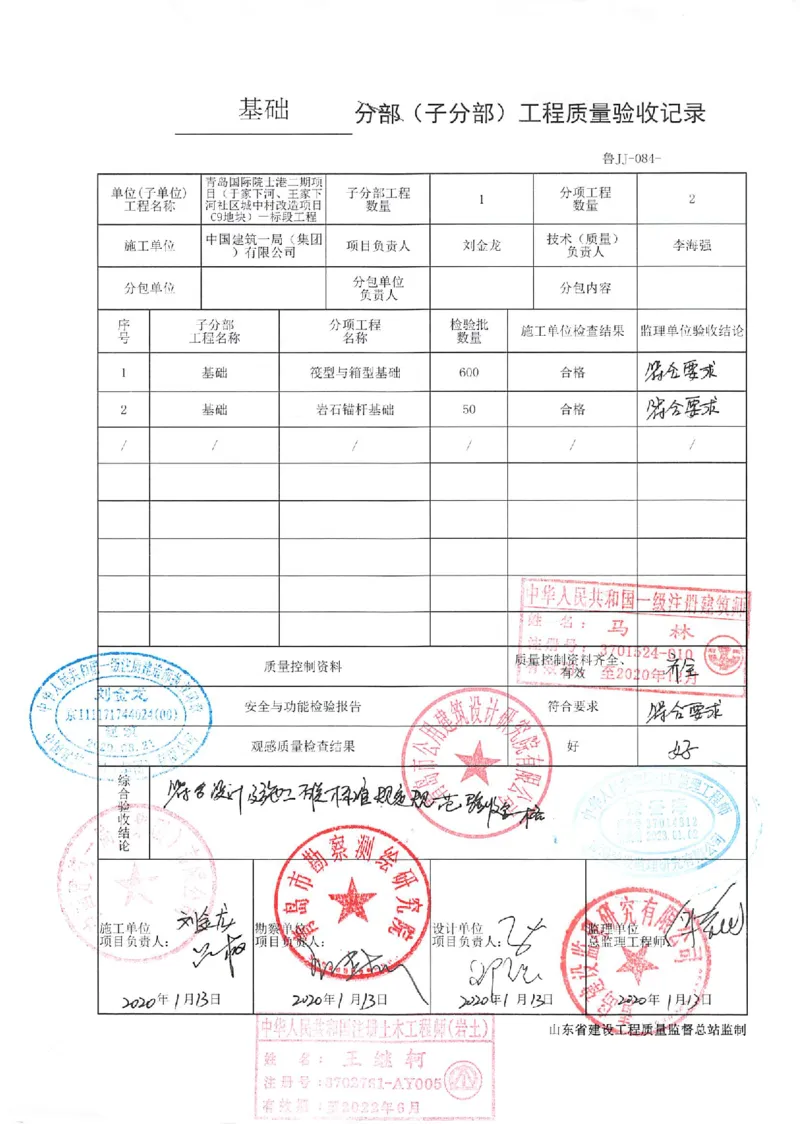 基础 分部(子分部)工程质量验收记录
鲁JJ-084-
单位(子单位)
工程名称
青岛国际院士港二期项
目(于家下河、王家下
河社区城中村改造项目
C9地块)一标段工程
子分部工程
数量
1
分项工程
数量
2
施工单位
中国建筑一局(集团
)有限公司
项目负责人
刘金龙
技术(质量)
负责人
李海强
分包单位
分包单位
负责人
分包内容
序
号
子分部
工程名称
分项工程
名称
检验批
数量
施工单位检查结果
监理单位验收结论
1 基础 筏型与箱型基础 600 合格 符合要求
2 基础 岩石锚杆基础 50 合格 符合要求
/ / / / / /
中华人民共和国一级注册建筑师
姓 名: 马 林
注册号: 3701524-010
至2020年12月
质量控制资料
质量控制资料齐全、
有效
齐全
安全与功能检验报告 符合要求 符合要求
观感质量检查结果 好 好
刘金龙
京111171744024(00)
建筑
综合验收结论
符合设计及施工
规范验收合格
施工单位
项目负责人:
刘金龙
2020年1月13日
青岛市勘察测绘研究院
勘察单位
项目负责人:
2020年1月13日
设计单位
项目负责人:
2020年1月13日
监理单位
总监理工程师
2020年1月13日
山东省建设工程质量监督总站监制
中华人民共和国注册土木工程师(岩土)
姓 名: 王继轲
注册号:3702751-AY005
有效期:至2022年6月